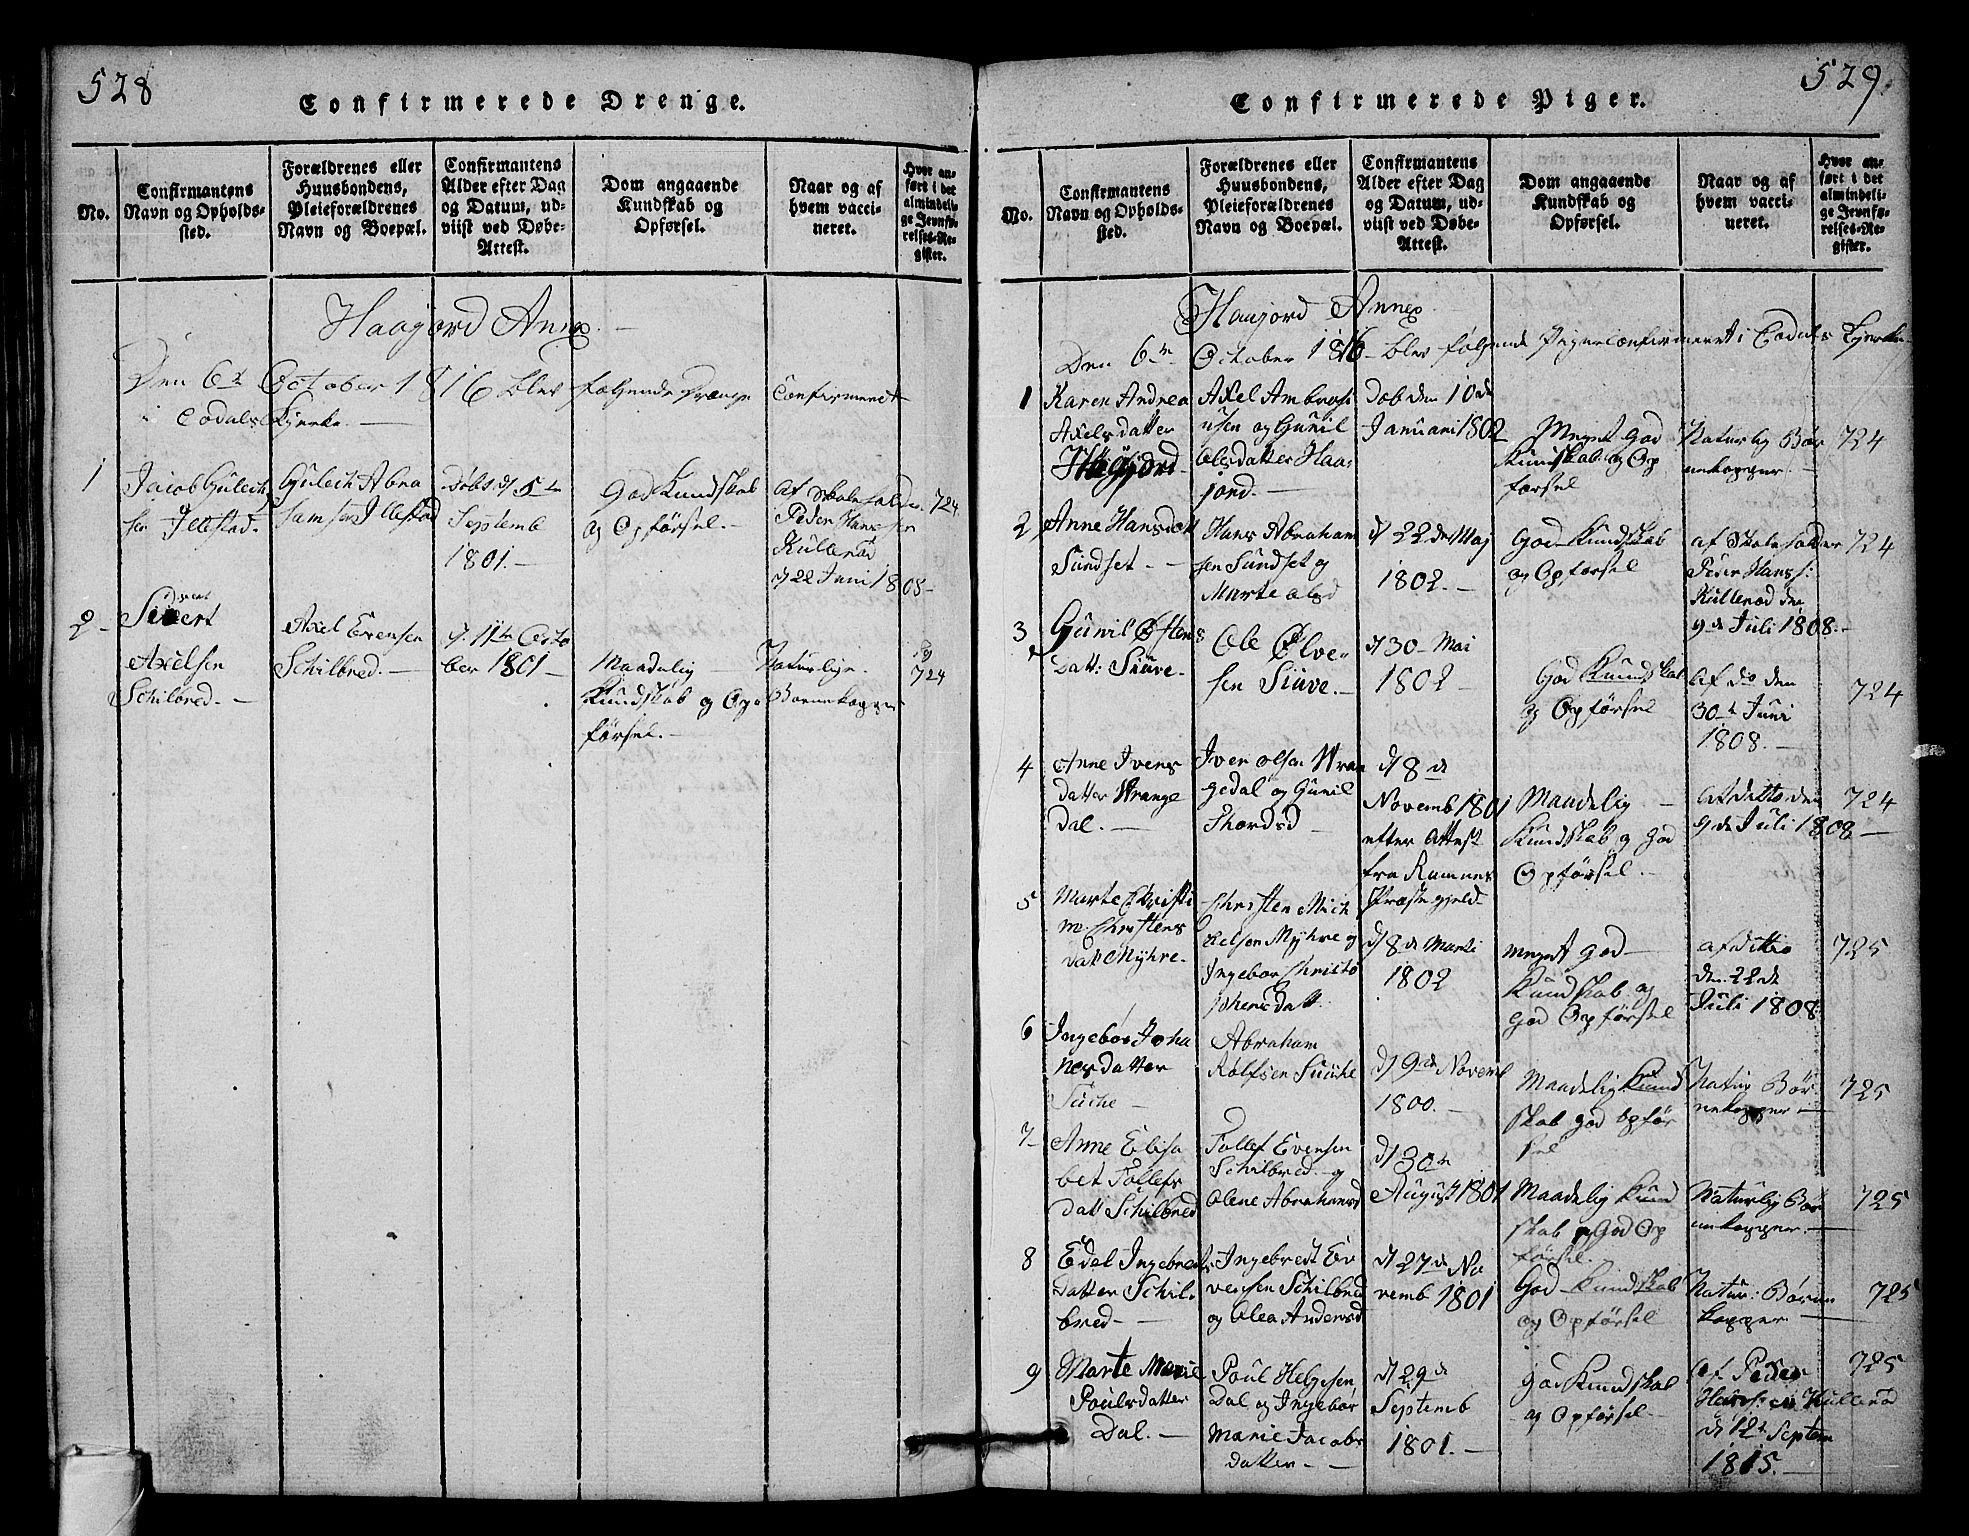 528
Confirmerede Drenge.
No.
Confirmantens
Navn og Opholds-
sted.
Forældrenes eller
Huusbondens,
Pleieforældrenes
Navn og Boepæl.
Confirmantens
Alder efter Dag
og Datum, ud-
viist ved Døbe-
Attest.
Dom angaaende
Kundskab og
Opførsel.
Naar og af
hvem vacci-
neret.
Hvor an-
ført i det
almindeli-
ge Jevnfø-
relses-Re-
gister.
Haagjord Annex.
Den 6te October 1816 blev følgende Drenge Confirmeret
i Eodals Kjerke.
1
Jacob Gulech
sen Illestad.
Gulech Abra
hamsen Illestad
døbt d 5te
Septemb
1801.
God Kundskab
og Opførsel.
af Skoleholder
Peder Hansen
Kullerød
d 22 Juni 1808
724
2
Sivert
Axelsen
Schilbred.
Axel Evensen
Schilbred.
d. 11te Octo
ber 1801
Maadelig
Kundskab og Op
førsel.
Naturlige
Bornekopper
724
529.
Confirmerede Piger.
No.
Confirmantens
Navn og Opholds-
sted.
Forældrenes eller
Huusbondens,
Pleieforældrenes
Navn og Boepæl.
Confirmantens
Alder efter Dag
og Datum, ud-
viist ved Døbe-
Attest.
Dom angaaende
Kundskab og
Opførsel.
Naar og af
hvem vacci-
neret.
Hvor an-
ført i det
almindeli-
ge Jevnfø-
relses-Re-
gister.
Haajord Annex
Den 6te October 1816 blev følgende Piger Confirmeret i Eodals Kjerke
1
Karen Andrea
Axelsdatter
Haajord
Axel Ambrosi
usen og Gunil
Olsdatter Haa
jord.
Døb den 10de
Januari 1802
Meget God
Kundskab og Op
førsel
Naturlig Bør
nekopper
724
2
Anne Hansdatt
Sundset
Hans Abraham
sen Sundset og
Marte Olsd
d 22de Maj
1802.
God Kundskab
og Opførsel
af Skoleholder
Peder Hanss:
Kullerød den
9de Juli 1808.
724
3
Gunil Østens
Datt: Siuve
Ole Ølve
sen Siuve.
d 30 Mai
1802
God Kundskab
og Opførsel
af do den
30te Juni
1808.
724
4
Anne Ivers
datter Wrange
dal.
Iver Olsen Wran
gedal og Gunil
Thordsd
d 8de
Novemb 1801
efter Attest
fra Ramnes
Præstegjeld
Maadelig
Kundskab og God
Opførsel.
af ditto den
9de Juli 1808
724
5
Marte Christi
ne Christens
datt Myhre.
Christen Mich
elsen Myhre og
Ingebor Christo
phersdatt.
d 8de Marti
1802
meget God
Kundskab og
God Opførsel
af ditto
den 22de
Juli 1808
725
6
Ingebor Joha
nesdatter
Suche
Abraham
Rolfsen Suche
d 9de Novemb
1800.
Maadelig Kund
skab god Opfør
sel
Natur Bør
nekopper
725
7
Anne Elisa
bet Tollefs
datt Schilbred
Tollef Evensen
Schilbred og
Olene Abrahamsd
d 30te
August 1801
Maadelig Kund
skab og God Op
førsel.
Naturlig Bør
nekopper.
725
8
Edel Ingebredts
Datter Schil
bred
Ingebredt Ev
ensen Schilbred
og Olea Andersd
d 27de No
vemb 1801
God Kundskab
og Opførsel
Natur: Børne
kopper
725
9
Marte Marie
Poulsdatter
Dal.
Poul Helgesen
Dal og Ingebor
Marie Jacobs
datter
d 29de
Septemb
1801.
God Kundskab
og Opførsel
af Peder
Hansen Kullerød
d 12te Septem
1815.
725